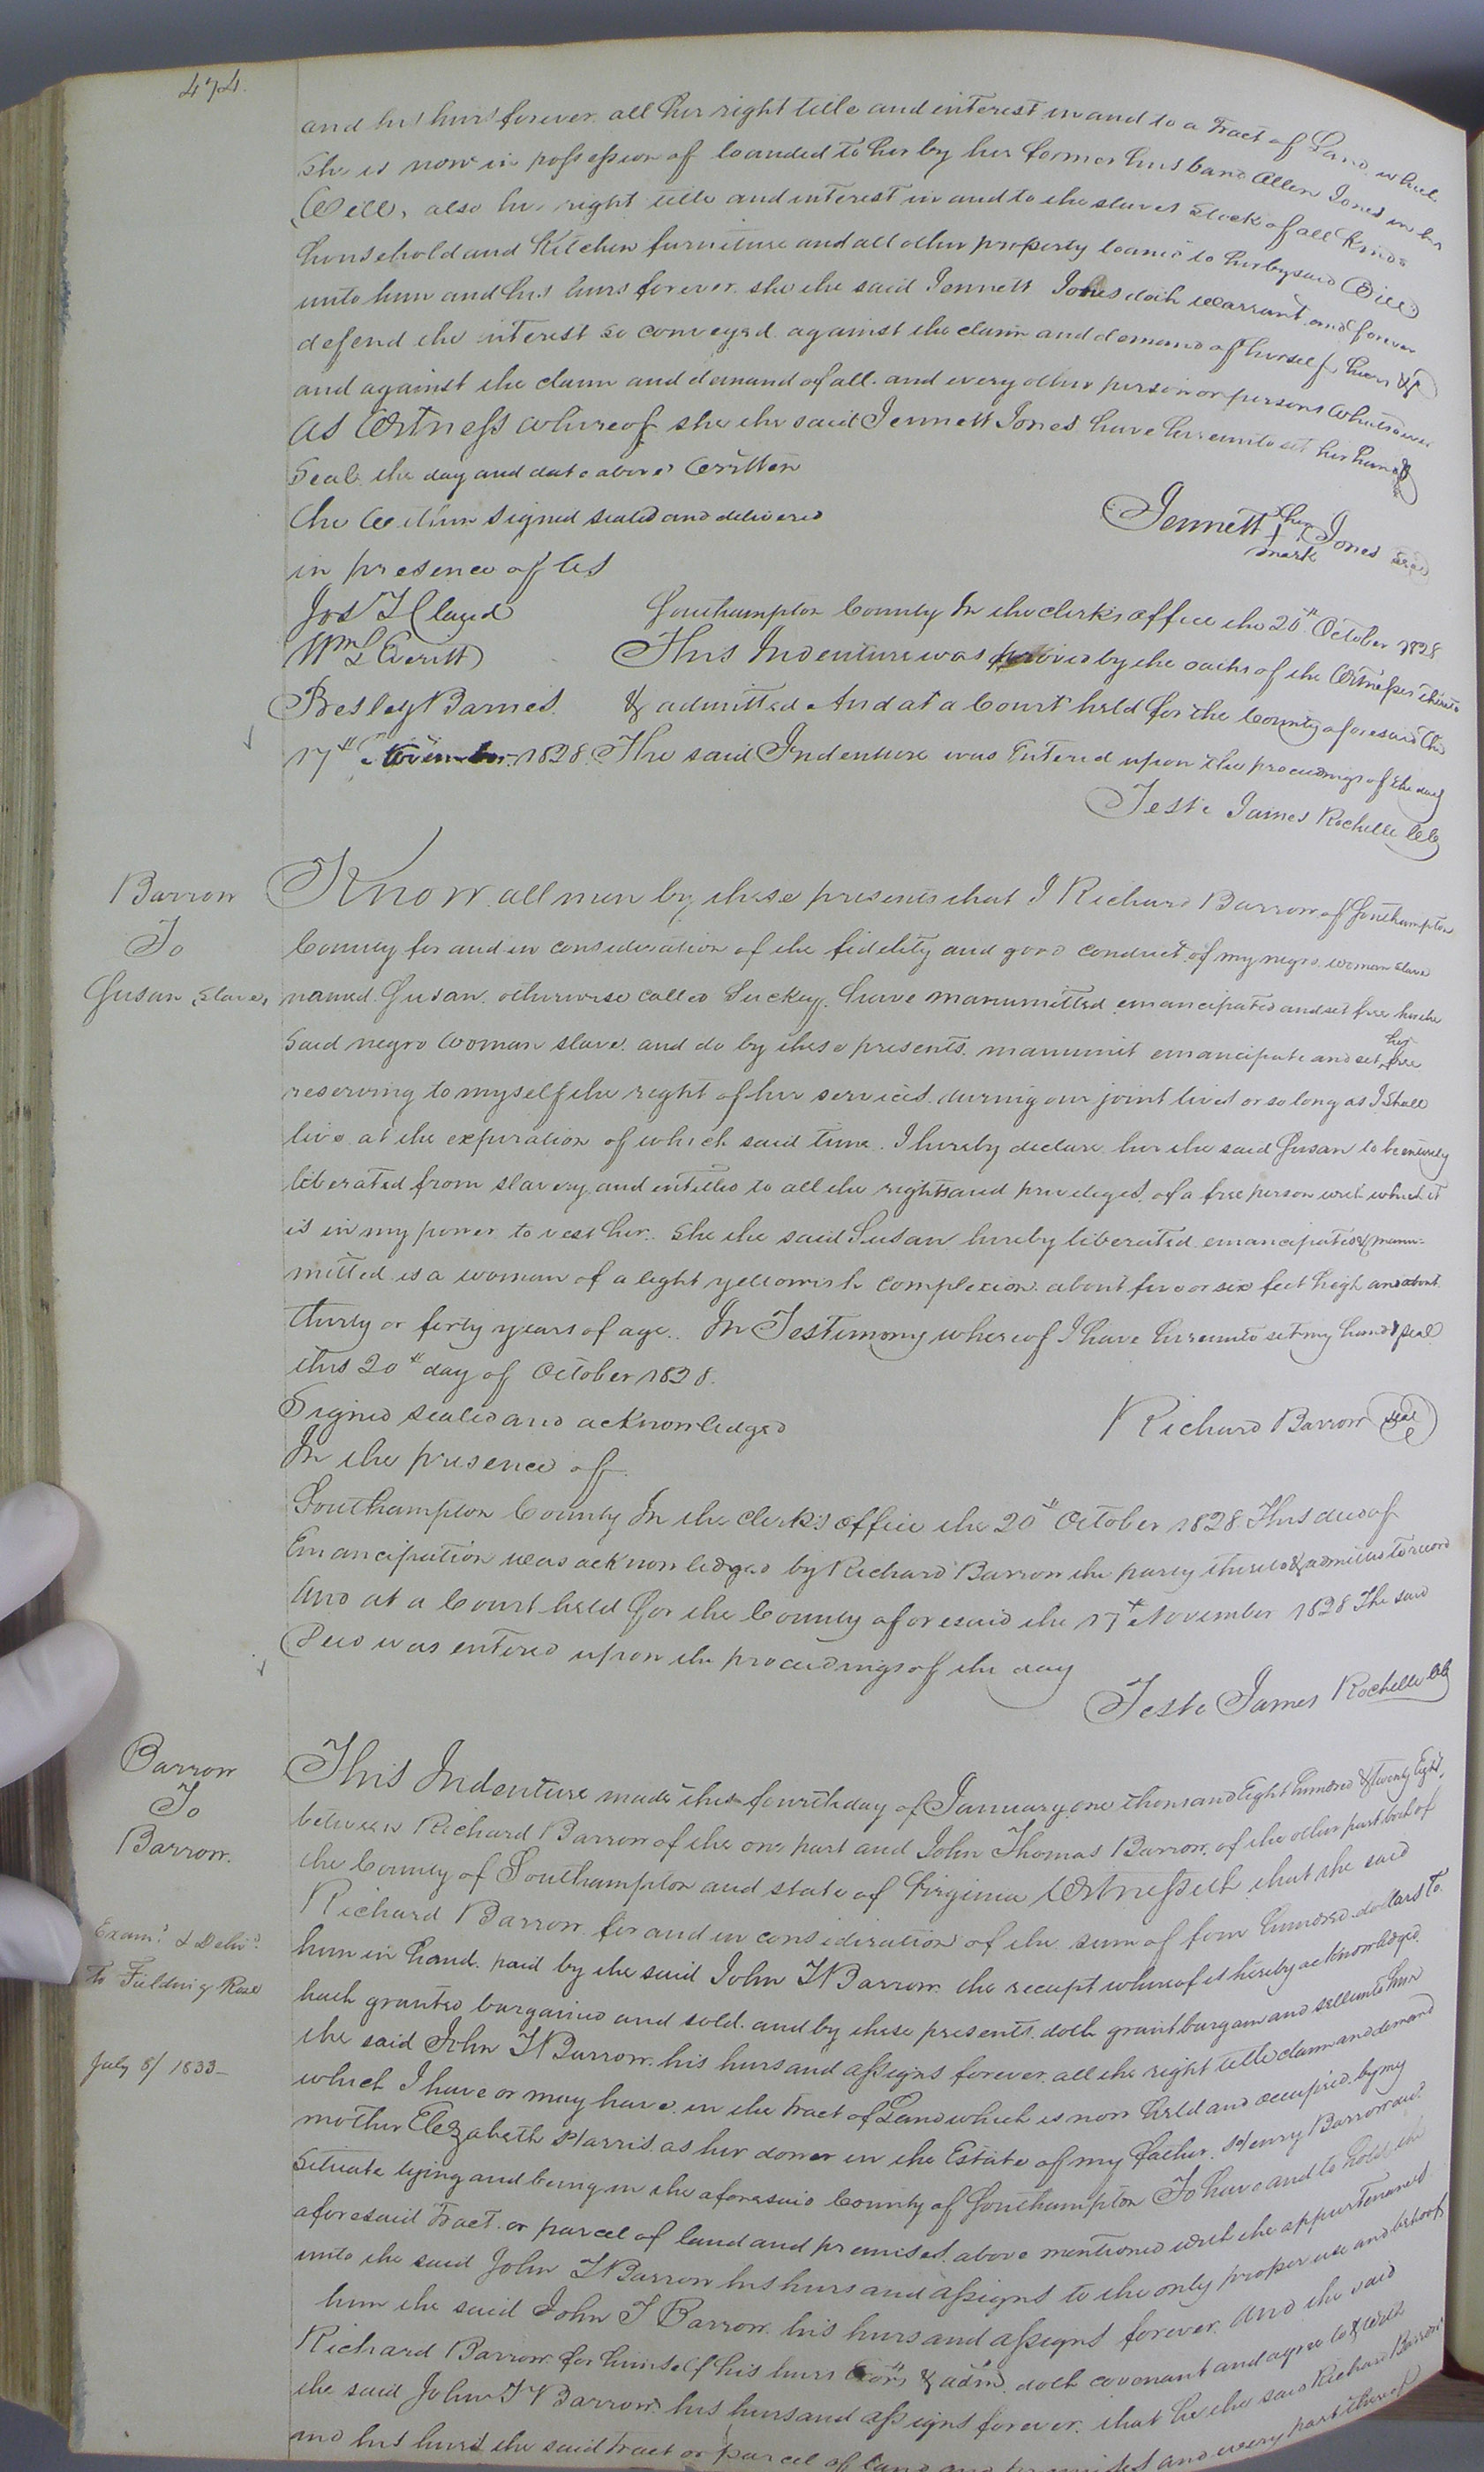 474.
and his heirs forever. all her right title and interest in and to a Tract of Land which
she is now in possession of loanded to her by her former husband Allen Jones in his
Will, also her right title and interest in and to the slaves stock of all kinds
household and Kitchen furniture and all other property loaned to her by said Will
unto him and his heirs forever. she the said Jennett Jones doth warrant and forever
defend the interest so conveyed against the claim and demand of herself heirs &c
and against the claim and demand of all. and every other person or persons whatsoever
As Witness whereof she the said Jennett Jones have hereunto set her hand &
Seal the day and date above Written
The Within signed sealed and delivered
Jennett her + mark Jones Seal
in presence of Us
Jos T Claud
Wm L Everitt
Presley Barnes.
Southampton County In the clerk's office the 20th October 1828
This Indenture was proved by the oaths of the Witnesses thereto
& admitted And at a Court held for the County aforesaid the
17th November 1828. The said Indenture was Entered upon the proceedings of the day
Teste James Rochelle Clk
Barron
To
Susan Slave,
Know all men by these presents that I Richard Barrow of Southampton
County for and in consideration of the fidelity and good conduct of my negro woman slave
named Susan otherwise called Suckey. have manumitted emancipated and set free her the
said negro woman slave. and do by these presents. manumit emancipate and set her free
reserving to myself the right of her services. during our joint lives or so long as I shall
live at the expiration of which said time. I hereby declare her the said Susan to be entirely
liberated from slavery. and entitled to all the rights and priveleges. of a free person with which it
is in my power to vest her. She the said Susan hereby liberated emancipated & manu-
mitted is a woman of a light yellowish complexion. about five or six feet high and about
thirty or forty years of age. In Testimony whereof I have hereunto set my hand & seal
this 20th day of October 1828.
Signed sealed and acknowledged
Richard Barrow Seal
In the presence of
Southampton County In the clerk's office the 20th October 1828. This deed of
Emancipation was acknowledged by Richard Barrow the party thereto & admitted to record
And at a Court held for the County aforesaid the 17th November 1828 The said
Deed was entered upon the proceedings of the day
Teste James Rochelle Clk
Barrow
To
Barrow.
Exam.d & Deliv.d
To Fielding Rose
July 8/ 1833–
This Indenture made this fourth day of January one thousand Eight hundred & twenty Eight.
between Richard Barrow of the one part and John Thomas Barrow. of the other part both of
the County of Southampton and state of Virginia Witnesseth that the said
Richard Barrow for and in consideration of the sum of four hundred dollars to
him in hand. paid by the said John T Barrow the receipt whereof is hereby acknowledged.
hath granted bargained and sold. and by these presents. doth grant bargain and sell unto him
the said John T Barrow. his heirs and assigns forever. all the right title claim and demand
which I have or may have in the Tract of Land which is now held and occupied. by my
mother Elizabeth Harris as her dower in the Estate of my father. Henry Barrow decd.
situate lying and being in the aforesaid County of Southampton To have and to hold the
aforesaid Tract or parcel of land and premises. above mentioned with the appurtenances
unto the said John T Barrow his heirs and assigns to the only proper use and behoof
him the said John T Barrow. his heirs and assigns forever. And the said
Richard Barrow. for himself his heirs Exors & adm. doth covenant and agree to & with
the said John T Barrow his heirs and assigns forever. that he the said Richard Barrow
and his heirs the said Tract or parcel of land and premises and every part thereof